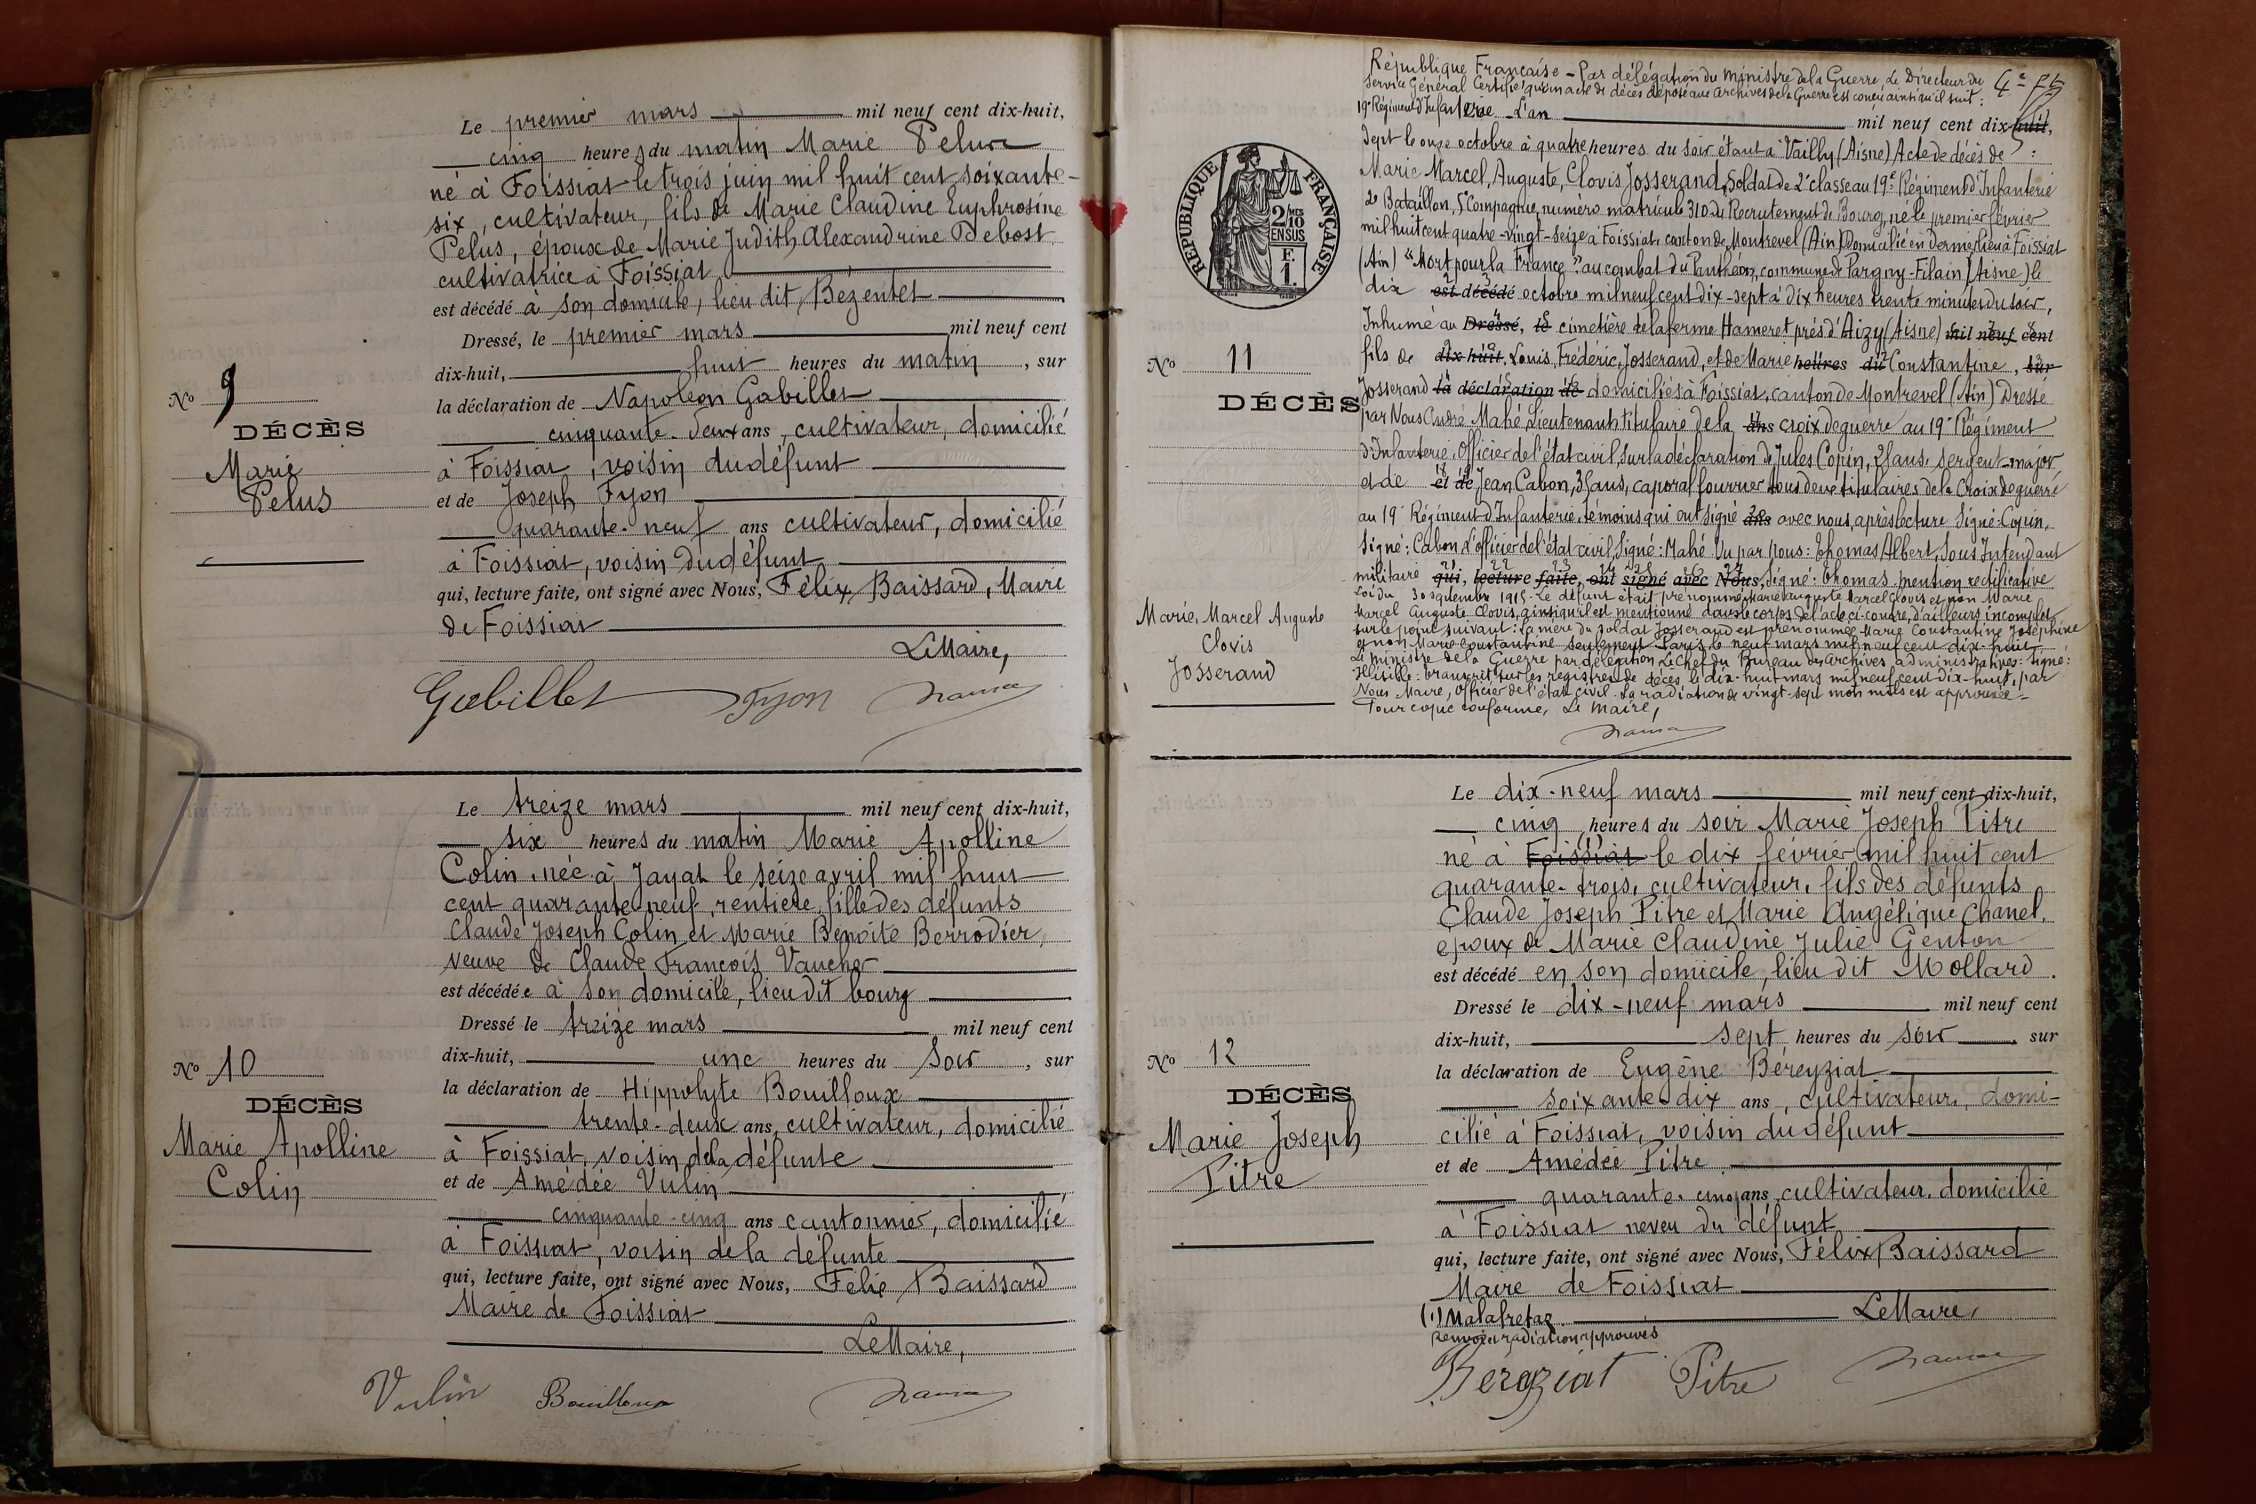 Le premier mars mil neuf cent dix-huit,
cinq heures du matin Marie Pelus
né à Foissiat le trois juin mil huit cent soixante-
six, cultivateur, fils de Marie Claudine Euphrosine
Pelus, époux de Marie Judith Alexandrine Debost
cultivatrice à Foissiat
est décédé à son domicile, lieu dit, Bézentet
Dressé, le premier mars mil neuf cent
dix-huit, huit heures du matin, sur
la déclaration de Napoléon Gabillet
cinquante-deux ans, cultivateur, domicilié
à Foissiat, voisin du défunt
et de Joseph Fyon
quarante-neuf ans cultivateur, domicilié
à Foissiat, voisin du défunt
qui, lecture faite, ont signé avec Nous, Félix Baissard, Maire
de Foissiat
Le Maire,
Gabillet Fyon
No 9
DÉCÈS
Marie
Pelus
Le treize mars mil neuf cent dix-huit,
six heures du matin Marie Apolline
Colin, née à Jayat le seize avril mil huit
cent quarante neuf, rentière, fille des défunts
Claude Joseph Colin et Marie Benoite Berrodier,
veuve de Claude François Vaucher
est décédée à son domicile, lieu dit bourg
Dressé le treize mars mil neuf cent
dix-huit, une heures du soir, sur
la déclaration de Hippolyte Bouilloux
trente-deux ans, cultivateur, domicilié
à Foissiat, voisin de la défunte
et de Amédée Vulin
cinquante-cinq ans cantonnier, domicilié
à Foissiat, voisin de la défunte
qui, lecture faite, ont signé avec Nous, Félix Baissard
Maire de Foissiat
Le Maire,
Vulin Bouilloux
No 10
DÉCÈS
Marie Apolline
Colin
République Française - Par délégation du ministre de la Guerre, Le Directeur du
Service Général Certifie qu'un acte de décès déposé aux archives de la Guerre est conçu ainsi qu'il suit:
19e Régiment d'Infanterie - L'an mil neuf cent dix-huit,
Sept le onze octobre à quatre heures du soir étant à Vailly (Aisne) Acte de décès de :
Marie Marcel, Auguste, Clovis Josserand, Soldat de 2e classe au 19e Régiment d'Infanterie
2e Bataillon, 5e Compagnie, numéro matricule 310 du Recrutement de Bourg, né le premier février
mil huit cent quatre-vingt-seize à Foissiat canton de Montrevel (Ain) Domicilié en dernier lieu à Foissiat
(Ain) "Mort pour la France" au combat du Panthéon, commune de Pargny-Filain (Aisne) le
dix est décédé octobre mil neuf cent dix-sept à dix heures trente minutes du soir,
Inhumé au Dressé, le cimetière de la ferme Hameret près d'Aizy (Aisne) mil neuf cent
fils de dix-huit, Louis, Frédéric, Josserand, et de Marie heures du Constantine, sur
Josserand la déclaration de domiciliés à Foissiat, canton de Montrevel (Ain) Dressé
par Nous André Mahé Lieutenant titulaire de la ans croix de guerre au 19e Régiment
d'Infanterie, Officier de l'état civil, sur la déclaration de Jules Copin, ans, sergent-major,
et de et de Jean Cabon, ans, caporal fourrier tous deux titulaires de la Croix de guerre
au 19e Régiment d'Infanterie, témoins qui ont signé ans avec nous, après lecture Signé: Copin,
Signé: Cabon, L'officier de l'état civil, Signé: Mahé Vu par Nous: Thomas Albert, Sous Intendant
militaire qui, lecture faite, ont signé avec Nous, Signé: Thomas. mention rectificative
Loi du 30 septembre 1915. Le défunt était prénommé Marie Auguste Marcel Clovis et non Marie
Marcel Auguste Clovis, ainsi qu'il est mentionné dans le corps de l'acte ci-contre, d'ailleurs incomplet
sur le point suivant: La mère du soldat Josserand est prénommée Marie Constantine Joséphine
et non Marie Constantine seulement Paris le neuf mars mil neuf cent dix-huit
Le Ministre de la Guerre par délégation Le Chef du Bureau des Archives administratives: Signé:
Illisible: Transcrit sur les registres de décès le dix-huit mars mil neuf cent dix-huit, par
Nous Maire, officier de l'état civil. La radiation de vingt-sept mots nuls est approuvée
Pour copie conforme, Le Maire,
No 11
DÉCÈS
Marie, Marcel Auguste
Clovis
Josserand
Le dix-neuf mars mil neuf cent dix-huit,
cinq heures du soir Marie Joseph Pitre
né à Foissiat (1) le dix février mil huit cent
quarante-trois, cultivateur, fils des défunts
Claude Joseph Pitre et Marie Angélique Chanel,
époux de Marie Claudine Julie Genton
est décédé en son domicile, lieu dit Mollard.
Dressé le dix-neuf mars mil neuf cent
dix-huit, sept heures du soir, sur
la déclaration de Eugène Béreyziat
soixante-dix ans, cultivateur, domi-
cilié à Foissiat, voisin du défunt
et de Amédée Pitre
quarante-cinq ans, cultivateur, domicilié
à Foissiat neveu du défunt
qui, lecture faite, ont signé avec Nous, Félix Baissard
Maire de Foissiat
(1) Malafretaz Le Maire,
Renvoi et radiation approuvés
Béreyziat Pitre
No 12
DÉCÈS
Marie Joseph
Pitre
RÉPUBLIQUE FRANÇAISE
2/10 EN SUS
F. 1.